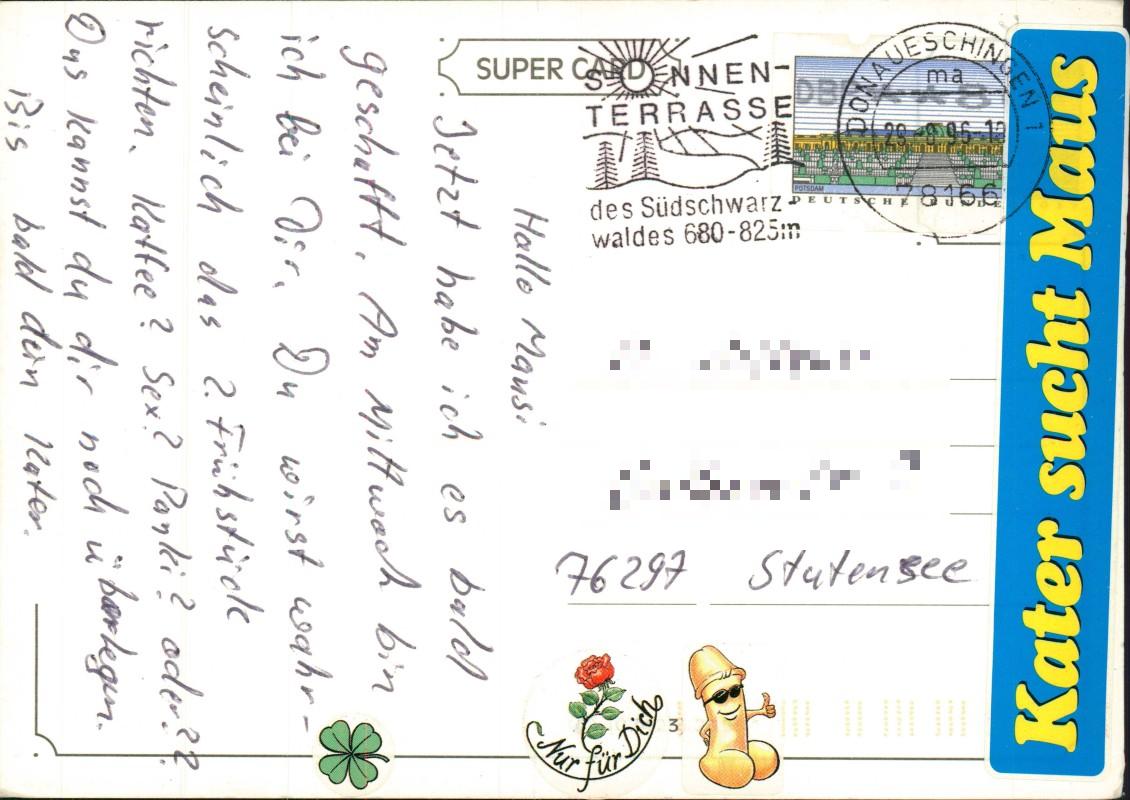 SUPER CARD
SONNEN-
TERRASSE
des Südschwarz-
waldes 680-825m
DONAUESCHINGEN 1
ma
29.-8.96-12
78166
DBP
POTSDAM
DEUTSCHE BUNDE
Hallo Mausi
Jetzt habe ich es bald
geschafft. Am Mittwoch bin
ich bei Dir. Du wirst wahr-
scheinlich das 2. Frühstück
richten. Kaffee? Sex? Panki? oder??
Das kannst du dir noch überlegen.
Bis bald dein Kater.
76297 Stutensee
Nur für Dich
3
Kater sucht Maus